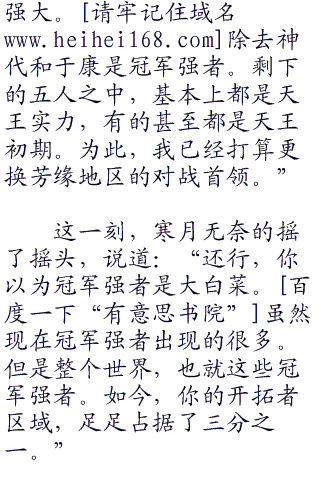 强大。[请牢记住域名
www.heihei168.com]除去神
代和于康是冠军强者。剩下
的五人之中，基本上都是天
王实力，有的甚至都是天王
初期。为此，我已经打算更
换芳缘地区的对战首领。”
这一刻，寒月无奈的摇
了摇头，说道：“还行，你
以为冠军强者是大白菜。[百
度一下“有意思书院”]虽然
现在冠军强者出现的很多。
但是整个世界，也就这些冠
军强者。如今，你的开拓者
区域，足足占据了三分之
一。”